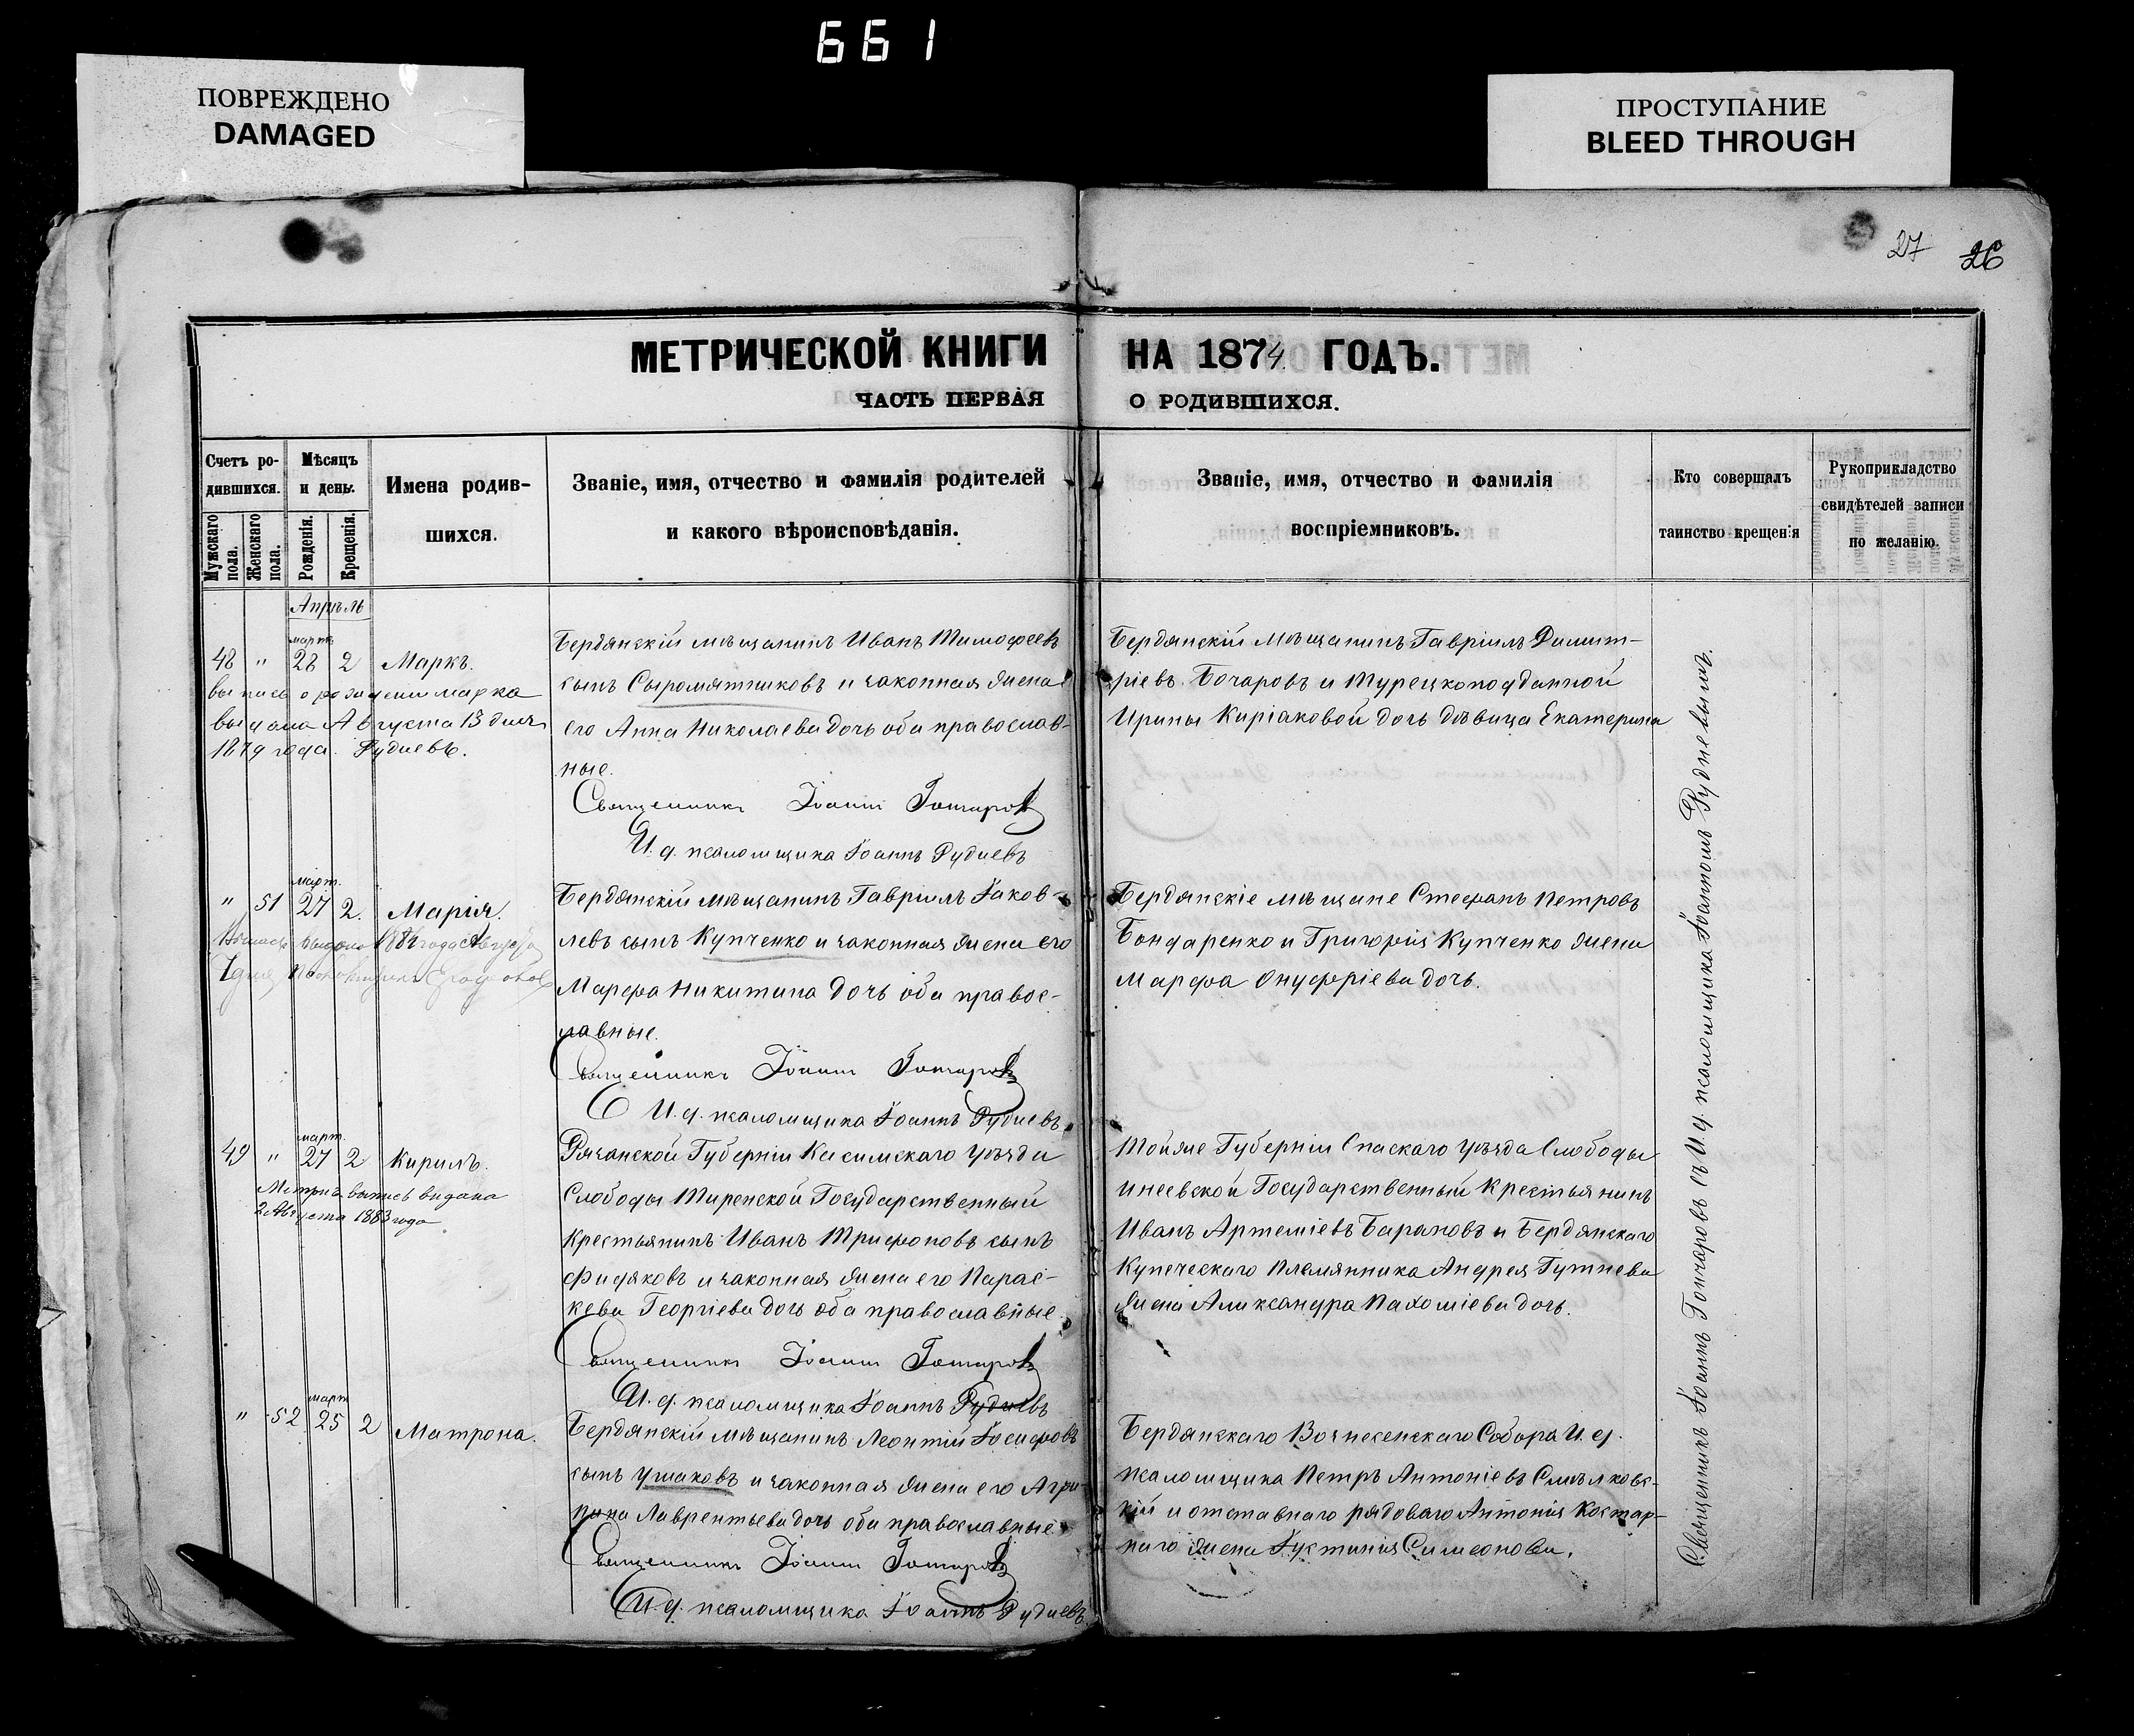 661
ПОВРЕЖДЕНО
DAMAGED
ПРОСТУПАНИЕ
BLEED THROUGH
27 26
МЕТРИЧЕСКОЙ КНИГИ НА 1874 ГОДЪ.
ЧАСТЬ ПЕРВАЯ О РОДИВШИХСЯ.
Счетъ ро-
дившихся.
Мужскаго пола.
Женскаго пола.
Мѣсяцъ
и день.
Рожденія.
Крещенія.
Имена родив-
шихся.
Званіе, имя, отчество и фамилія родителей
и какого вѣроисповѣданія.
Званіе, имя, отчество и фамилія
воспріемниковъ.
Кто совершалъ
таинство крещенія
Рукоприкладство
свидѣтелей записи
по желанію.
Апрѣль
март.
48 " 28 2 Маркъ.
выпись о рождении марка
выдана Августа 13 дня
1879 года. Рудневъ.
Бердянскій мѣщанинъ Иванъ Тимофеевъ
сынъ Сыромятниковъ и законная жена
его Анна Николаева дочь оба православ-
ные.
Священникъ Іоаннъ Гончаровъ
И. д. псаломщика Іоаннъ Рудневъ
Бердянскій мѣщанинъ Гавріилъ Димит-
ріевъ Бочаровъ и Турецкоподданной
Ирины Киріаковой дочь дѣвица Екатерина
март.
" 51 27 2. Марія.
выдана 1884 года Августа
7 дня
Бердянскій мѣщанинъ Гавріилъ Іаков-
левъ сынъ Купченко и законная жена его
Марфа Никитина дочь оба правос-
лавные.
Священникъ Іоаннъ Гончаровъ
И. д. псаломщика Іоаннъ Рудневъ.
Бердянскіе мѣщане Стефанъ Петровъ
Бондаренко и Григорія Купченко жена
Марфа Онуфріева дочь.
март.
49 " 27 2 Кирилъ.
Метрич. выпись видана
2 Августа 1883 года
Рязанской Губерніи Касимскаго уѣзда
Слободы Тиренской Государственный
крестьянинъ Иванъ Трифоновъ сынъ
Фидяковъ и законная жена его Парас-
кева Георгіева дочь оба православные.
Священникъ Іоаннъ Гончаровъ
И. д. псаломщика Іоаннъ Рудневъ
Тойже Губерніи Спаскаго уѣзда Слободы
Инеевской Государственный Крестьянинъ
Иванъ Артеміевъ Барановъ и Бердянскаго
Купеческаго племянника Андрея Гутнева
жена Александра Пахоміева дочь.
март
" 52 25 2 Матрона.
Бердянскій мѣщанинъ Леонтій Іосифовъ
сынъ Ушаковъ и законная жена его Агри-
пина Лаврентьева дочь оба православные
Священникъ Іоаннъ Гончаровъ
И. д. псаломщика Іоаннъ Рудневъ.
Бердянскаго Вознесенскаго Собора И. д.
псаломщика Петръ Антоніевъ Смѣлковс-
кій и отставнаго рядоваго Антонія Костар-
наго жена Іустинія Симеонова.
Священникъ Іоаннъ Гончаровъ съ И. д. псаломщика Іоанномъ Рудневымъ.